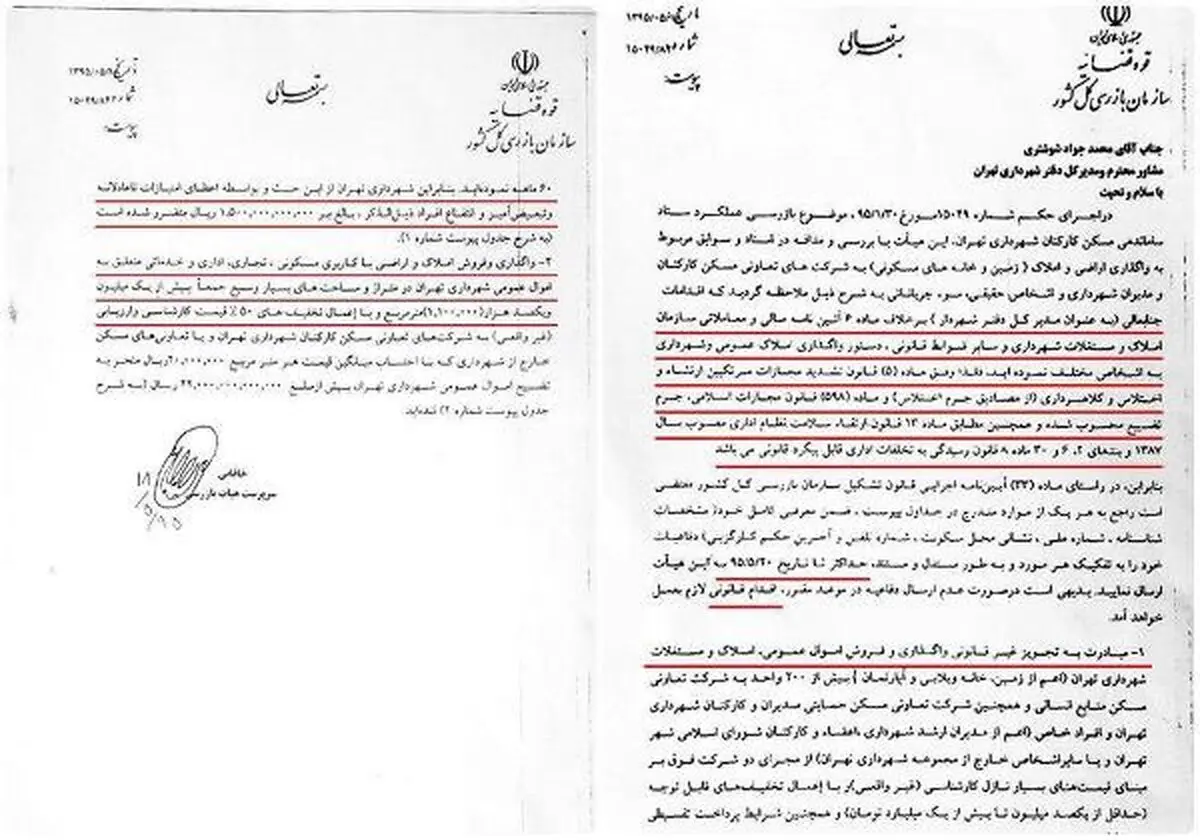 تاریخ ۱۳۹۵/۰۵/
شماره ۱۵۰۲۹/۸۴۲
پیوست:
بسمه تعالی
جمهوری اسلامی ایران
قوه قضائیه
سازمان بازرسی کل کشور
جناب آقای محمد جواد شوشتری
مشاور محترم ومدیرکل دفتر شهرداری تهران
با سلام و تحیت
دراجرای حکم شماره ۱۵۰۲۹مورخ ۹۵/۱/۳۰ ، موضوع بازرسی عملکرد ستاد
ساماندهی مسکن کارکنان شهرداری تهران، این هیأت با بررسی و مداقه در اسناد و سوابق مربوط
به واگذاری اراضی و املاک ( زمین و خانه های مسکونی) به شرکت های تعاونی مسکن کارکنان
و مدیران شهرداری و اشخاص حقیقی، سوء جریاناتی به شرح ذیل ملاحظه گردید که اقدامات
جنابعالی (به عنوان مدیر کل دفتر شهردار ) برخلاف ماده ۶ آئین نامه مالی و معاملاتی سازمان
املاک و مستغلات شهرداری و سایر ضوابط قانونی ، دستور واگذاری املاک عمومی وشهرداری
به اشخاص مختلف نموده اید. لذا؛ وفق ماده (۵) قانون تشدید مجازات مرتکبین ارتشاء و
اختلاس و کلاهبرداری (از مصادیق جرم اختلاس) و ماده (۵۹۸) قانون مجازات اسلامی، جرم
تضییع محسوب شده و همچنین مطابق ماده ۱۳ قانون ارتقاء سلامت نظام اداری مصوب سال
۱۳۸۷ و بندهای ۲، ۶ و ۳۰ ماده ۸ قانون رسیدگی به تخلفات اداری قابل پیگرد قانونی می باشد
بنابراین، در راستای ماده (۳۳) آیین‌نامه اجرایی قانون تشکیل سازمان بازرسی کل کشور مقتضی
است راجع به هر یک از موارد مندرج در جداول پیوست ، ضمن معرفی کامل خود( مشخصات
شناسنامه ، شماره ملی ، نشانی محل سکونت ، شماره تلفن و آخرین حکم کارگزینی) دفاعیات
خود را به تفکیک هر مورد و به طور مستدل و مستند، حداکثر تا تاریخ ۹۵/۵/۲۰ به این هیأت
ارسال نمایید. بدیهی است درصورت عدم ارسال دفاعیه در موعد مقرر، اقدام قانونی لازم بعمل
خواهد آمد.
۱- مبادرت به تجویز غیر قانونی واگذاری و فروش اموال عمومی، املاک و مستغلات
شهرداری تهران (اعم از زمین، خانه ویلایی و آپارتمان ) بیش از ۲۰۰ واحد به شرکت تعاونی
مسکن منابع انسانی و همچنین شرکت تعاونی مسکن حمایتی مدیران و کارکنان شهرداری
تهران و افراد خاص (اعم از مدیران ارشد شهرداری ،اعضاء و کارکنان شورای اسلامی شهر
تهران و یا سایراشخاص خارج از مجموعه شهرداری تهران) از مجرای دو شرکت فوق بر
مبنای قیمت‌های بسیار نازل کارشناسی (غیر واقعی)و با إعمال تخفیف‌های قابل توجه
(حداقل از یکصد میلیون تا بیش از یک میلیارد تومان) و همچنین شرایط پرداخت تقسیطی
تاریخ ۱۳۹۵/۰۵/
شماره ۱۵۰۲۹/۸۴۲
پیوست:
بسمه تعالی
جمهوری اسلامی ایران
قوه قضائیه
سازمان بازرسی کل کشور
۶۰ ماهه نموده‌اید. بنابراین شهرداری تهران از این حیث و بواسطه اعطای امتیازات ناعادلانه
وتبعیض‌آمیز و انتفاع افراد ذیل‌الذکر ، بالغ بر ۱,۵۰۰,۰۰۰,۰۰۰,۰۰۰ ریال متضرر شده است
(به شرح جدول پیوست شماره ۱).
۲- واگذاری وفروش املاک و اراضی با کاربری مسکونی ، تجاری، اداری و خدماتی متعلق به
اموال عمومی شهرداری تهران در متراژ و مساحت های بسیار وسیع جمعاً بیش از یک میلیون
ویکصد هزار(۱,۱۰۰,۰۰۰)مترمربع و با إعمال تخفیف های ۵۰٪ قیمت کارشناسی وارزیابی
(غیر واقعی) به شرکت‌های تعاونی مسکن کارکنان شهرداری تهران و یا تعاونی‌های مسکن
خارج از شهرداری که با احتساب میانگین قیمت هر متر مربع ۲۰,۰۰۰,۰۰۰ریال منجر به
تضییع اموال عمومی شهرداری تهران بیش ازمبلغ ۲۲,۰۰۰,۰۰۰,۰۰۰,۰۰۰ ریال (به شرح
جدول پیوست شماره ۲) شده‌اید.
خاقانی
سرپرست هیات بازرسی
۱۸/۵/۹۵